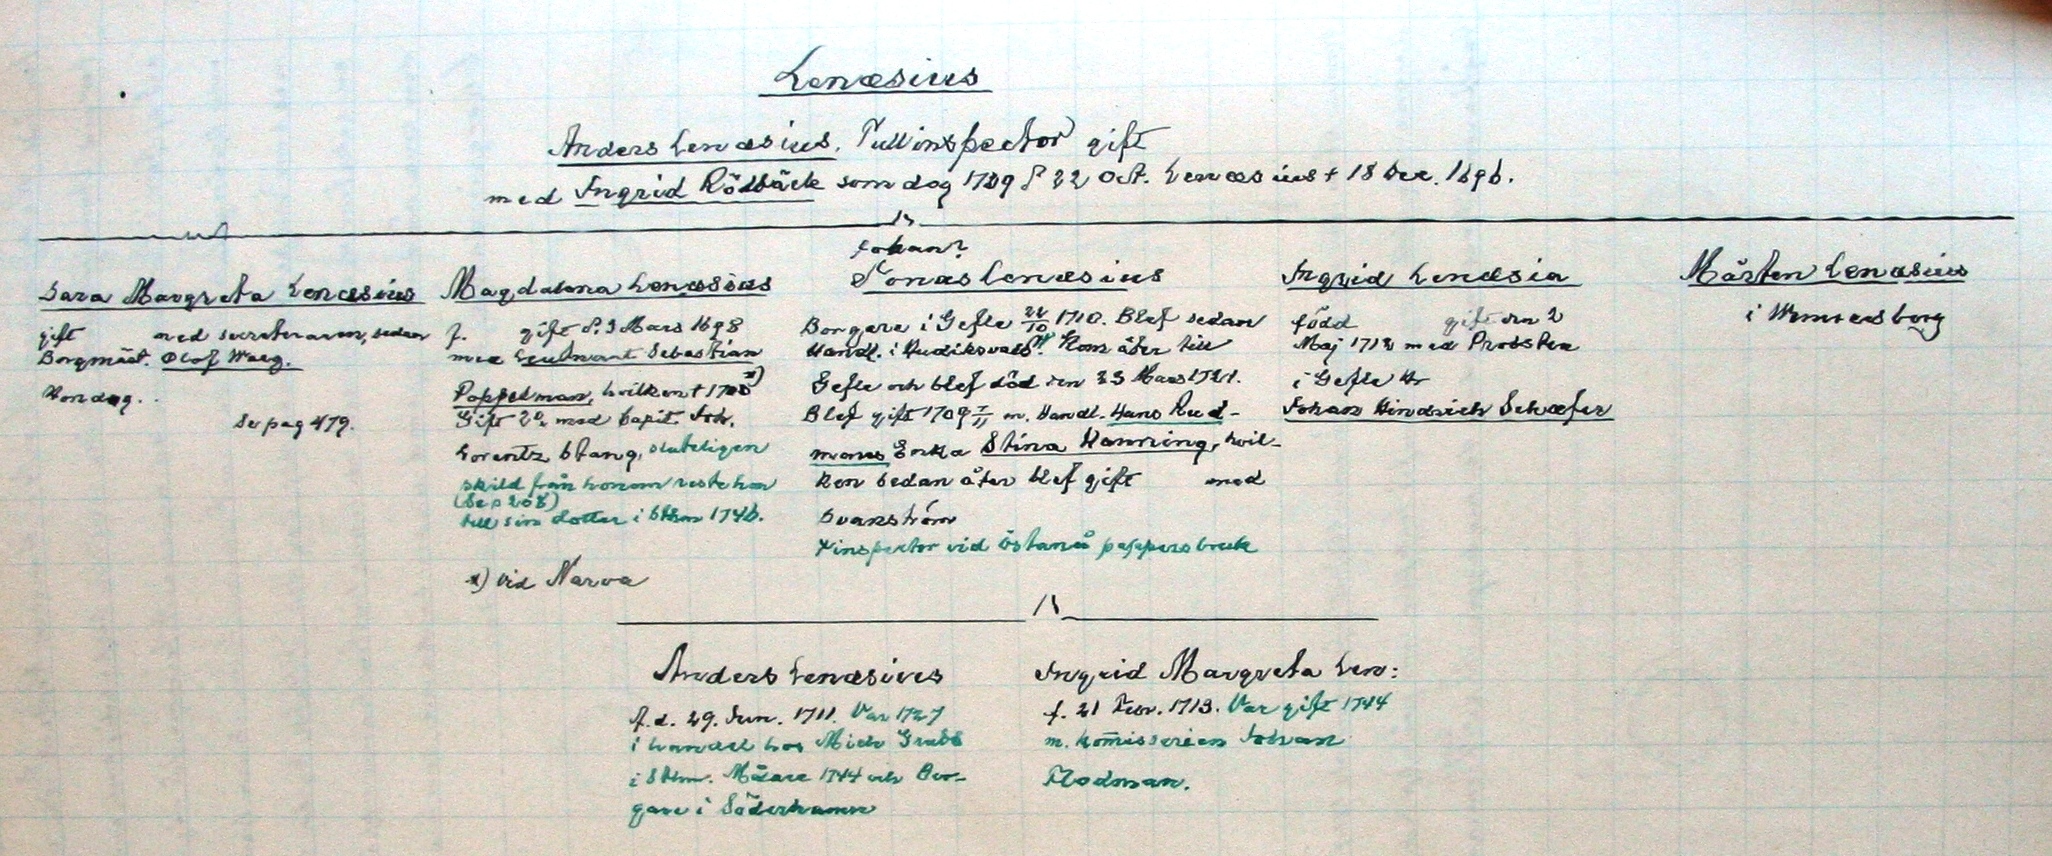 Lenæsius
Anders Lenæsius, Tullinspector gift
med Ingrid Rödbäck som dog 1709 d 22 Oct. Lenæsius † 18 Dec. 1696.
Sara Margreta Lenæsius
gift med secreteraren, sedan
Borgmäst. Olof Waeg.
Hon dog.
Se pag 479.
Magdalena Lenæsius
f. gift d. 3 Mars 1698
med Leutnant Sebastian
Poppelman, hvilken † 1700 x)
Gift 2o med Capit. Joh.
Lorentz Stang, sluteligen
skild från honom reste hon
(Se p 208)
till sin dotter i Sthm 1746.
x) vid Narva
Johan?
Jonas Lenæsius
Borgare i Gefle 22/10 1710. Blef sedan
Handl. i Hudiksvall. Kom åter till
Gefle och blef död den 23 Mars 1721.
Blef gift 1709 7/11 m. Handl. Hans Rud-
mans Enka Stina Hanning, hvil-
ken sedan åter blef gift med
Svanström
x inspector vid Östanå pappersbruk
Ingrid Lenæsia
född gift den 2
Maj 1712 med Probsten
i Gefle Hr
Johan Hindrich Schæfer
Mårten Lenæsius
i Wenersborg
Anders Lenæsius
f. d. 29. Jun. 1711. Var 1727
i handel hos Mich Grubb
i Sthm. Målare 1744 och Bor-
gare i Söderhamn
Ingrid Margreta Len:
f. 21 Febr. 1713. Var gift 1744
m. Kom̄isserien Johan
Flodman.